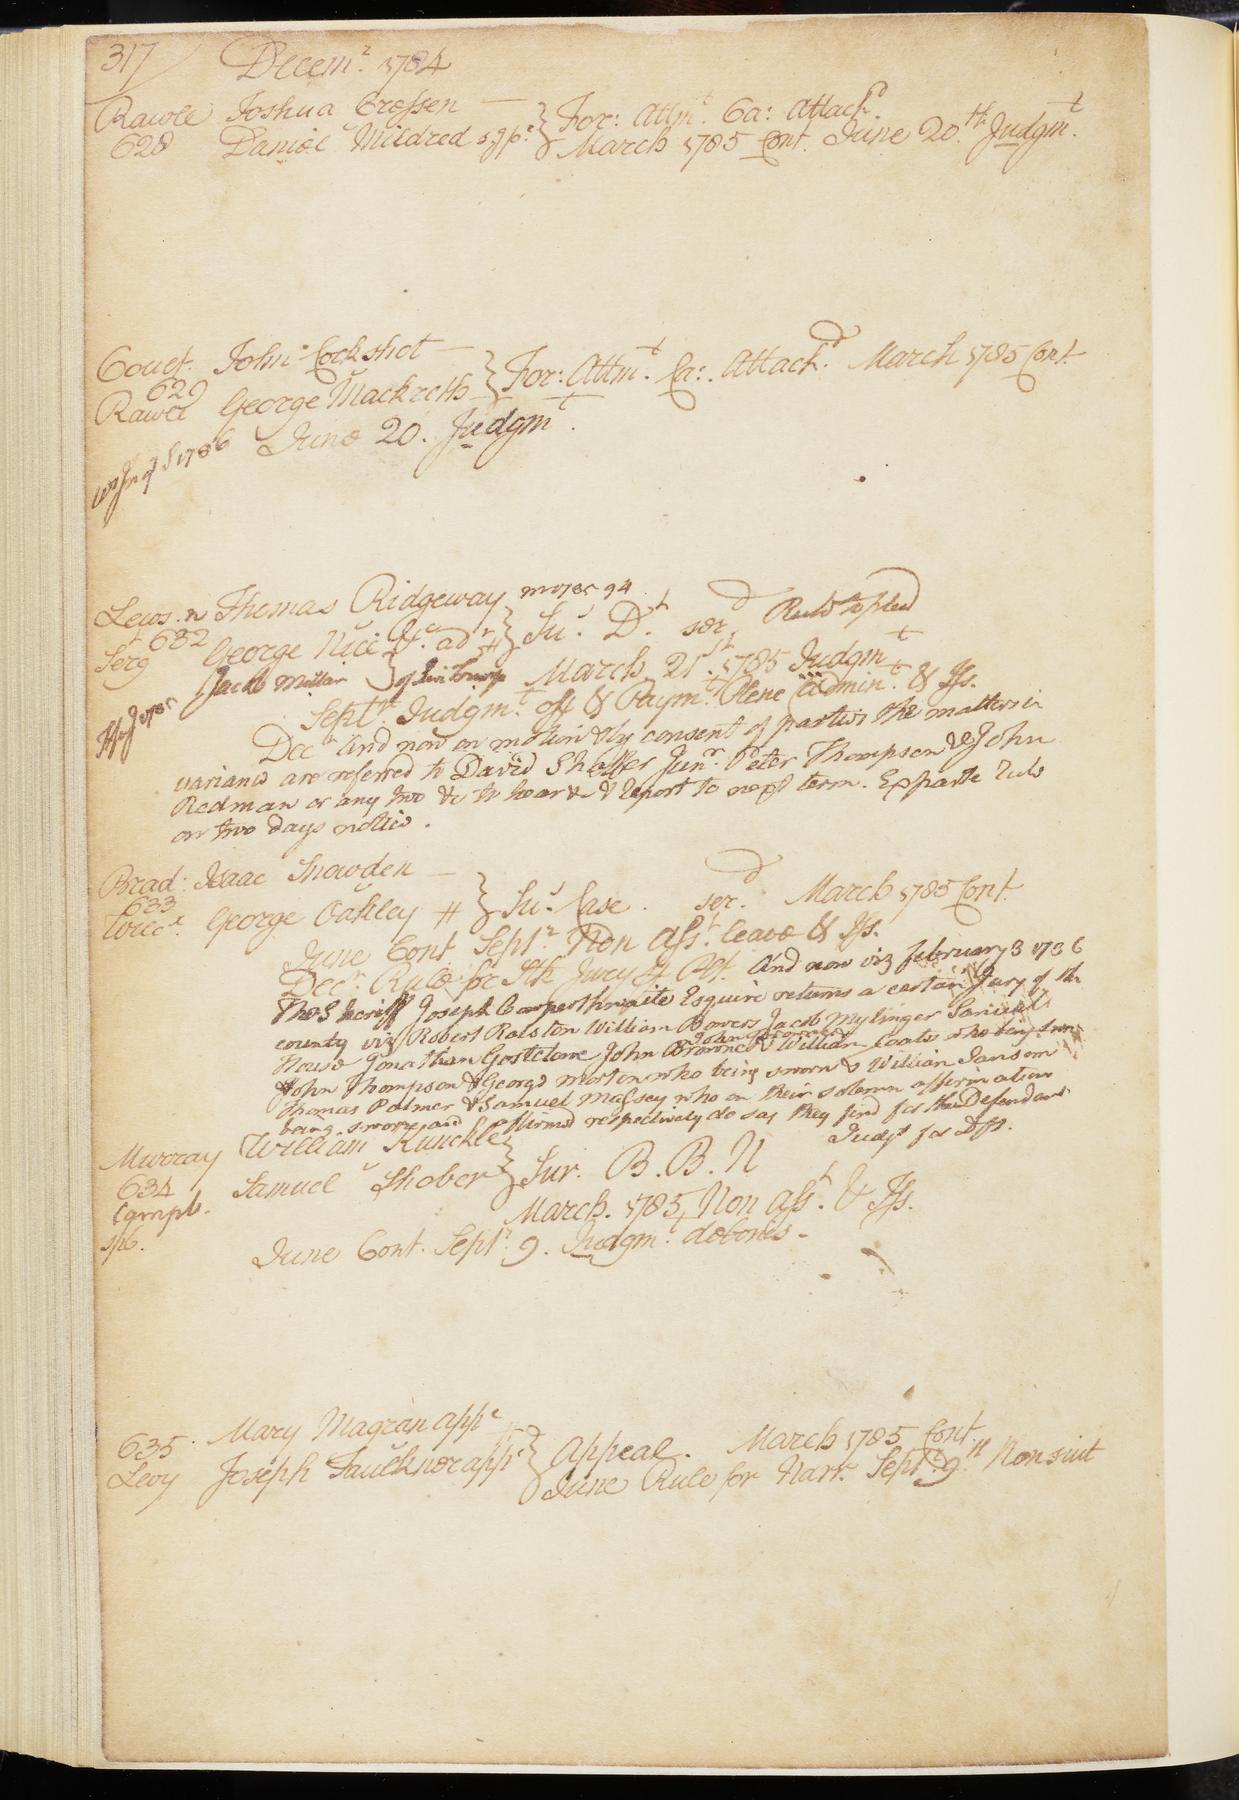 317 Decem.r 1784
Rawle Joshua Cressen — } For: Attm.t Ca: Attach.d
628 Daniel Mildred s,g,p.r } March 1785 Cont. June 20.th Judgm.t
Couet. John Cockshot — } For: Attm.t Ca: Attach.d March 1785 Cont
629
Rawle George Mackreth
June 20. Judgm.t
Lews. n Thomas Ridgeway
632 George Nice ad.r } Su.s D.t ser.d Rule to plead
Serg
Jacob Millar March 21st. 1785 Judgm.t
Sept.r Judgm.t off & Paym.t Plene Admin.t & Iss.
Dec.r And now on motion & by consent of parties the matters in
variance are referred to David Shaffer Jun.r Peter Thompson & John
Redman or any two &c to hear &c & Report to next term. Exparte Rule
on two days notice.
Brad: Isaac Snowden — } Su.s Case. ser.d March 1785 Cont.
633 George Oakley #
June Cont Sept.r Non Ass.t leave & Iss.
Dec.r Rule for Stk Jury And now viz february 3 1786
The Sheriff Joseph Cowperthwaite Esquire returns a certain Jury of the
county viz Robert Ralston William Bowers Jacob Mytinger
House Jonathan Gostelowe John Browne & William Coats who being sworn
& John Thompson & George Morton who being sworn & William Sansom
Thomas Palmer & Samuel Massey who on their solemn affirmation
being sworn and affirmed respectively do say they find for the Defendant
Judgt for Dft.
Murray William Kunckle } Sur. B. B. N
634 Samuel Shober
Campb. March. 1785, Non ass.t & Iss.
spb. June Cont. Sept.r 9. Judgm.t debones -
635 Mary Magran app.e } Appeal. March 1785 Cont
Levy Joseph Faulkner app.t } June Rule for Narr. Sept.r 9.th Nonsuit